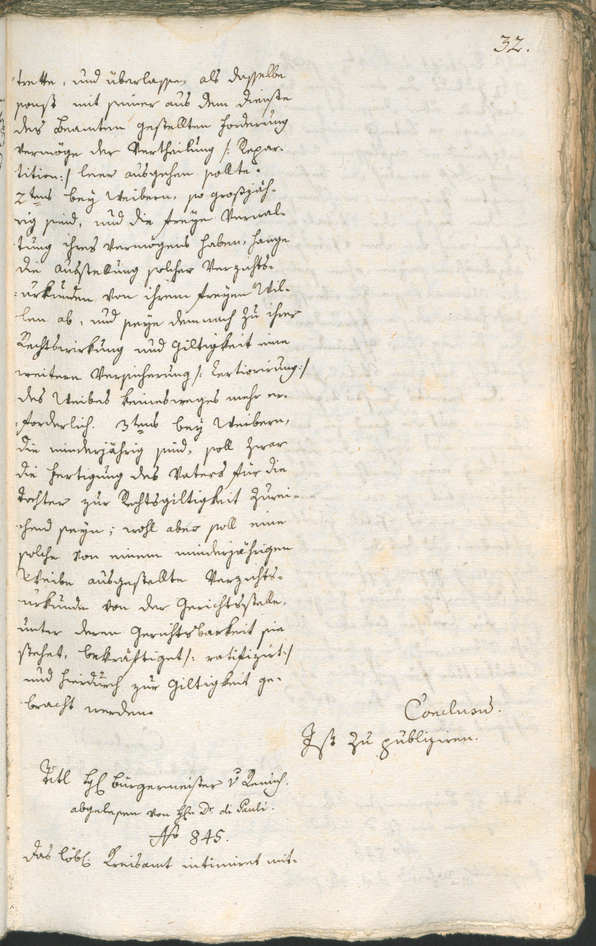 32.
trette, und überlassen, als dasselbe
sonst mit seiner aus dem Dienste
des Beamten gestellten Forderung
vermöge der Vertheilung /: Repar-
tition :/ leer ausgehen sollte.
2tens bey Weibern, so großjäh-
rig sind, und die freye Verwal-
tung ihres Vermögens haben, hange
die Ausstellung solcher Verzichts-
urkunden von ihrem freyen Wil-
len ab, und seye demnach zu ihrer
Rechtswirkung und Giltigkeit eine
weitere Versicherung /: Certiorirung :/
des Weibes keineswegs mehr er-
forderlich. 3tens bey Weibern,
die minderjährig sind, soll zwar
die Fertigung des Vaters für die
Tochter zur Rechtsgiltigkeit zurei-
chend seyn; wohl aber soll eine
solche von einem minderjährigen
Weibe ausgestellte Verzichts-
urkunde von der Gerichtsstelle,
unter deren Gerichtsbarkeit sie
stehet, bekräftiget /: ratifizirt :/
und hiedurch zur Giltigkeit ge-
bracht werden.
Conclusum.
Ist zu publiziren.
Titl H. Bürgermeister v
abgelesen von H. Dr. di Pauli.
No 845.
Das löbl. Kreisamt intimiret mit-